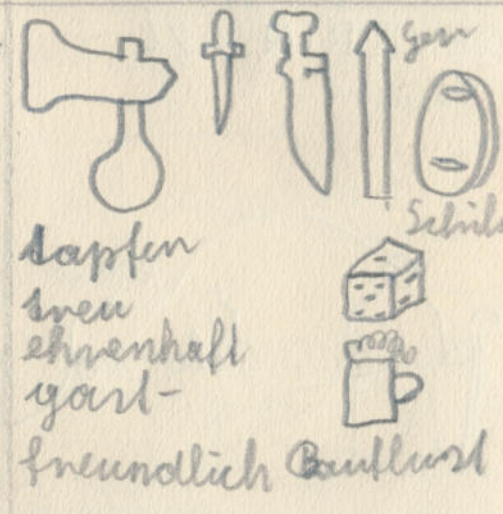 Ger
Schild
tapfer
treu
ehrenhaft
gast-
freundlich